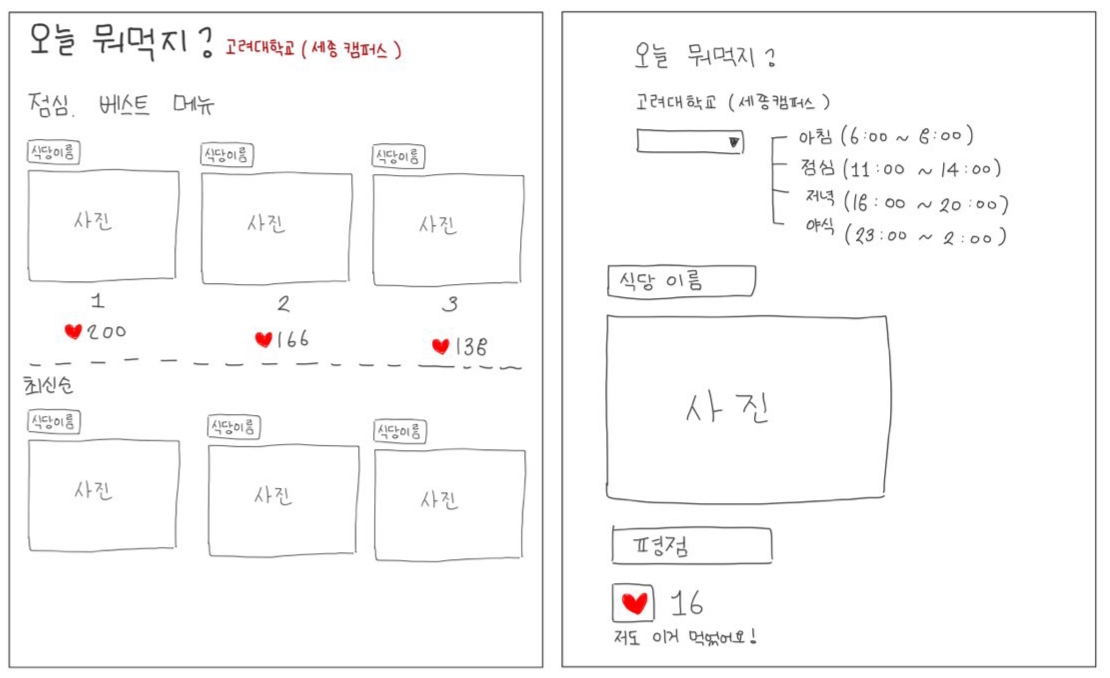 오늘 뭐먹지? 고려대학교 (세종 캠퍼스)
점심. 베스트 메뉴
식당이름 식당이름 식당이름
사진 사진 사진
1 2 3
200 166 138
최신순
식당이름 식당이름 식당이름
사진 사진 사진
오늘 뭐먹지?
고려대학교 (세종캠퍼스)
아침 (6:00 ~ 8:00)
점심 (11:00 ~ 14:00)
저녁 (18:00 ~ 20:00)
야식 (23:00 ~ 2:00)
식당 이름
사진
평점
16
저도 이거 먹었어요!